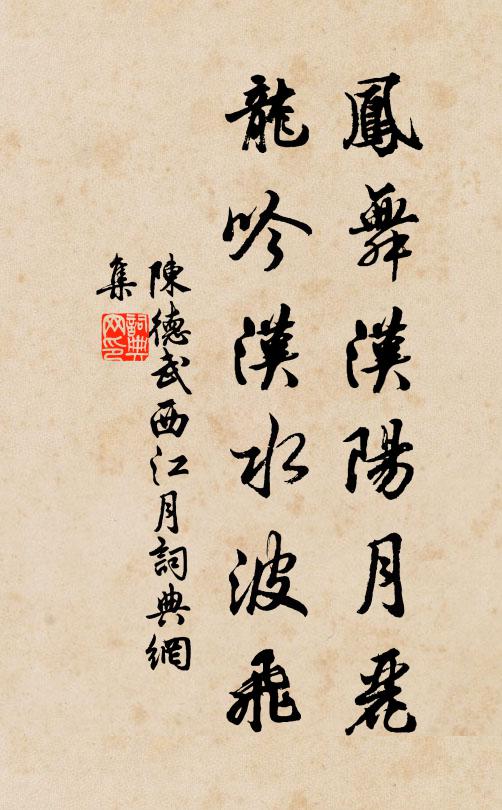 鳳舞漢陽月麗
龍吟漢水波飛
陳德武西江月詞典網
集
詞典網印